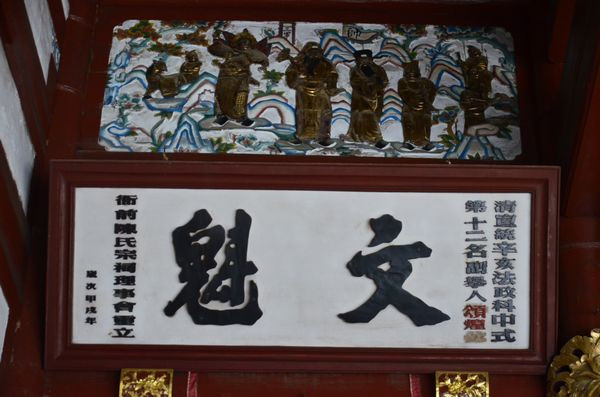 清宣統辛亥法政科中式
第十二名副舉人頌
文魁
衙前陳氏宗祠理事會重立
歲次甲戌年